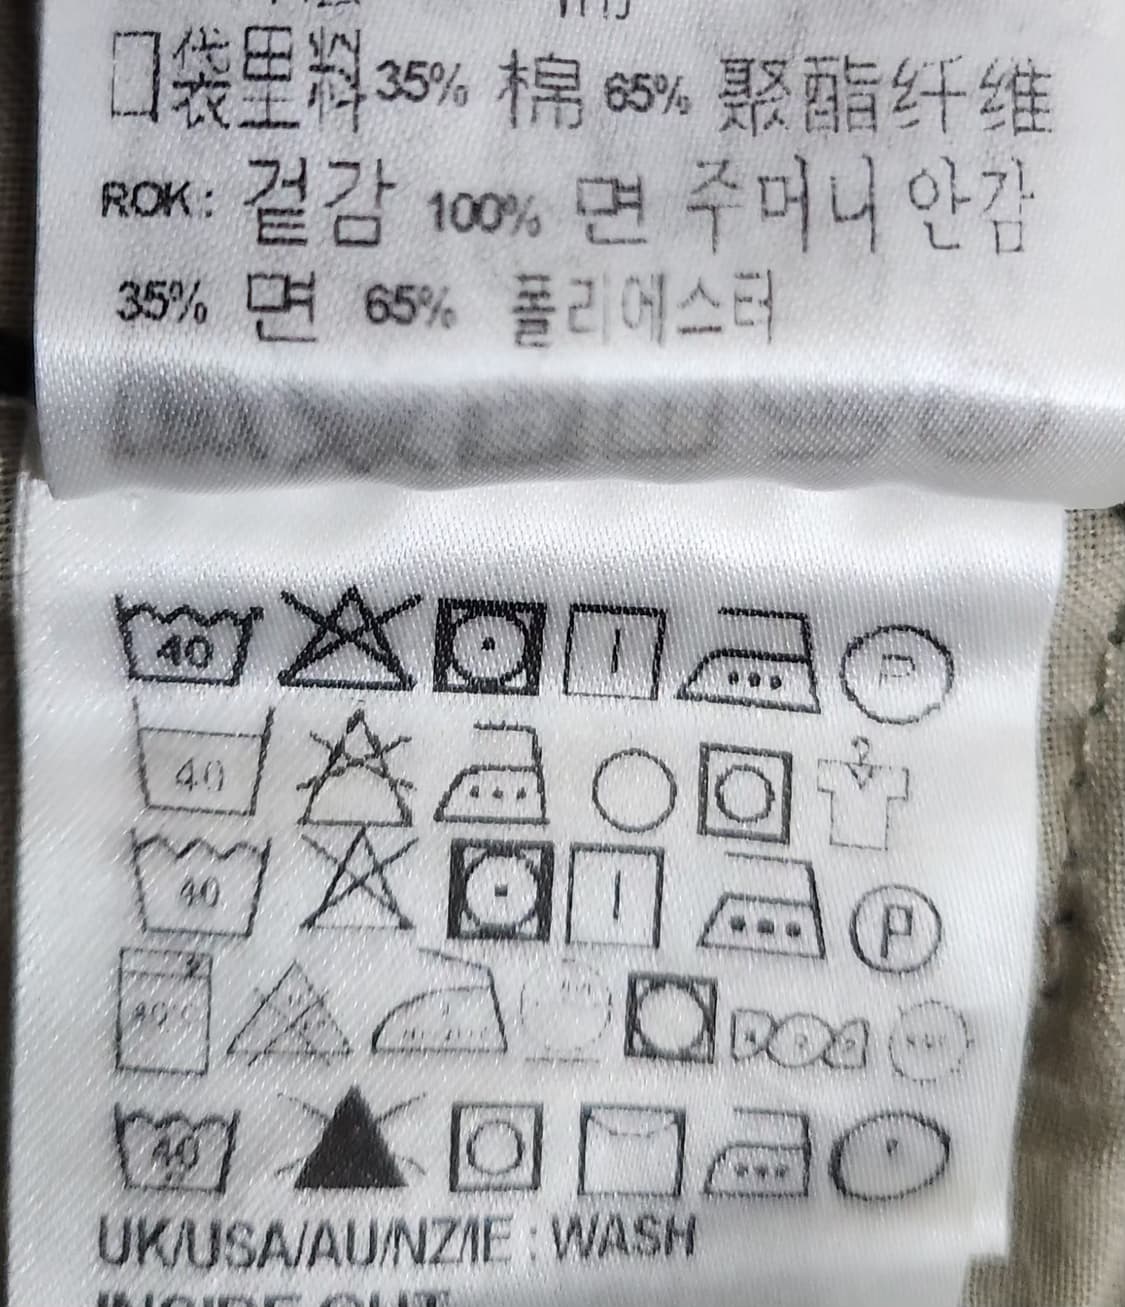 口袋里料 35% 棉 65% 聚酯纤维
ROK: 겉감 100% 면 주머니 안감
35% 면 65% 폴리에스터
40 P
40
40 P
40°C
40
UK/USA/AU/NZ/IE : WASH
INSIDE OUT